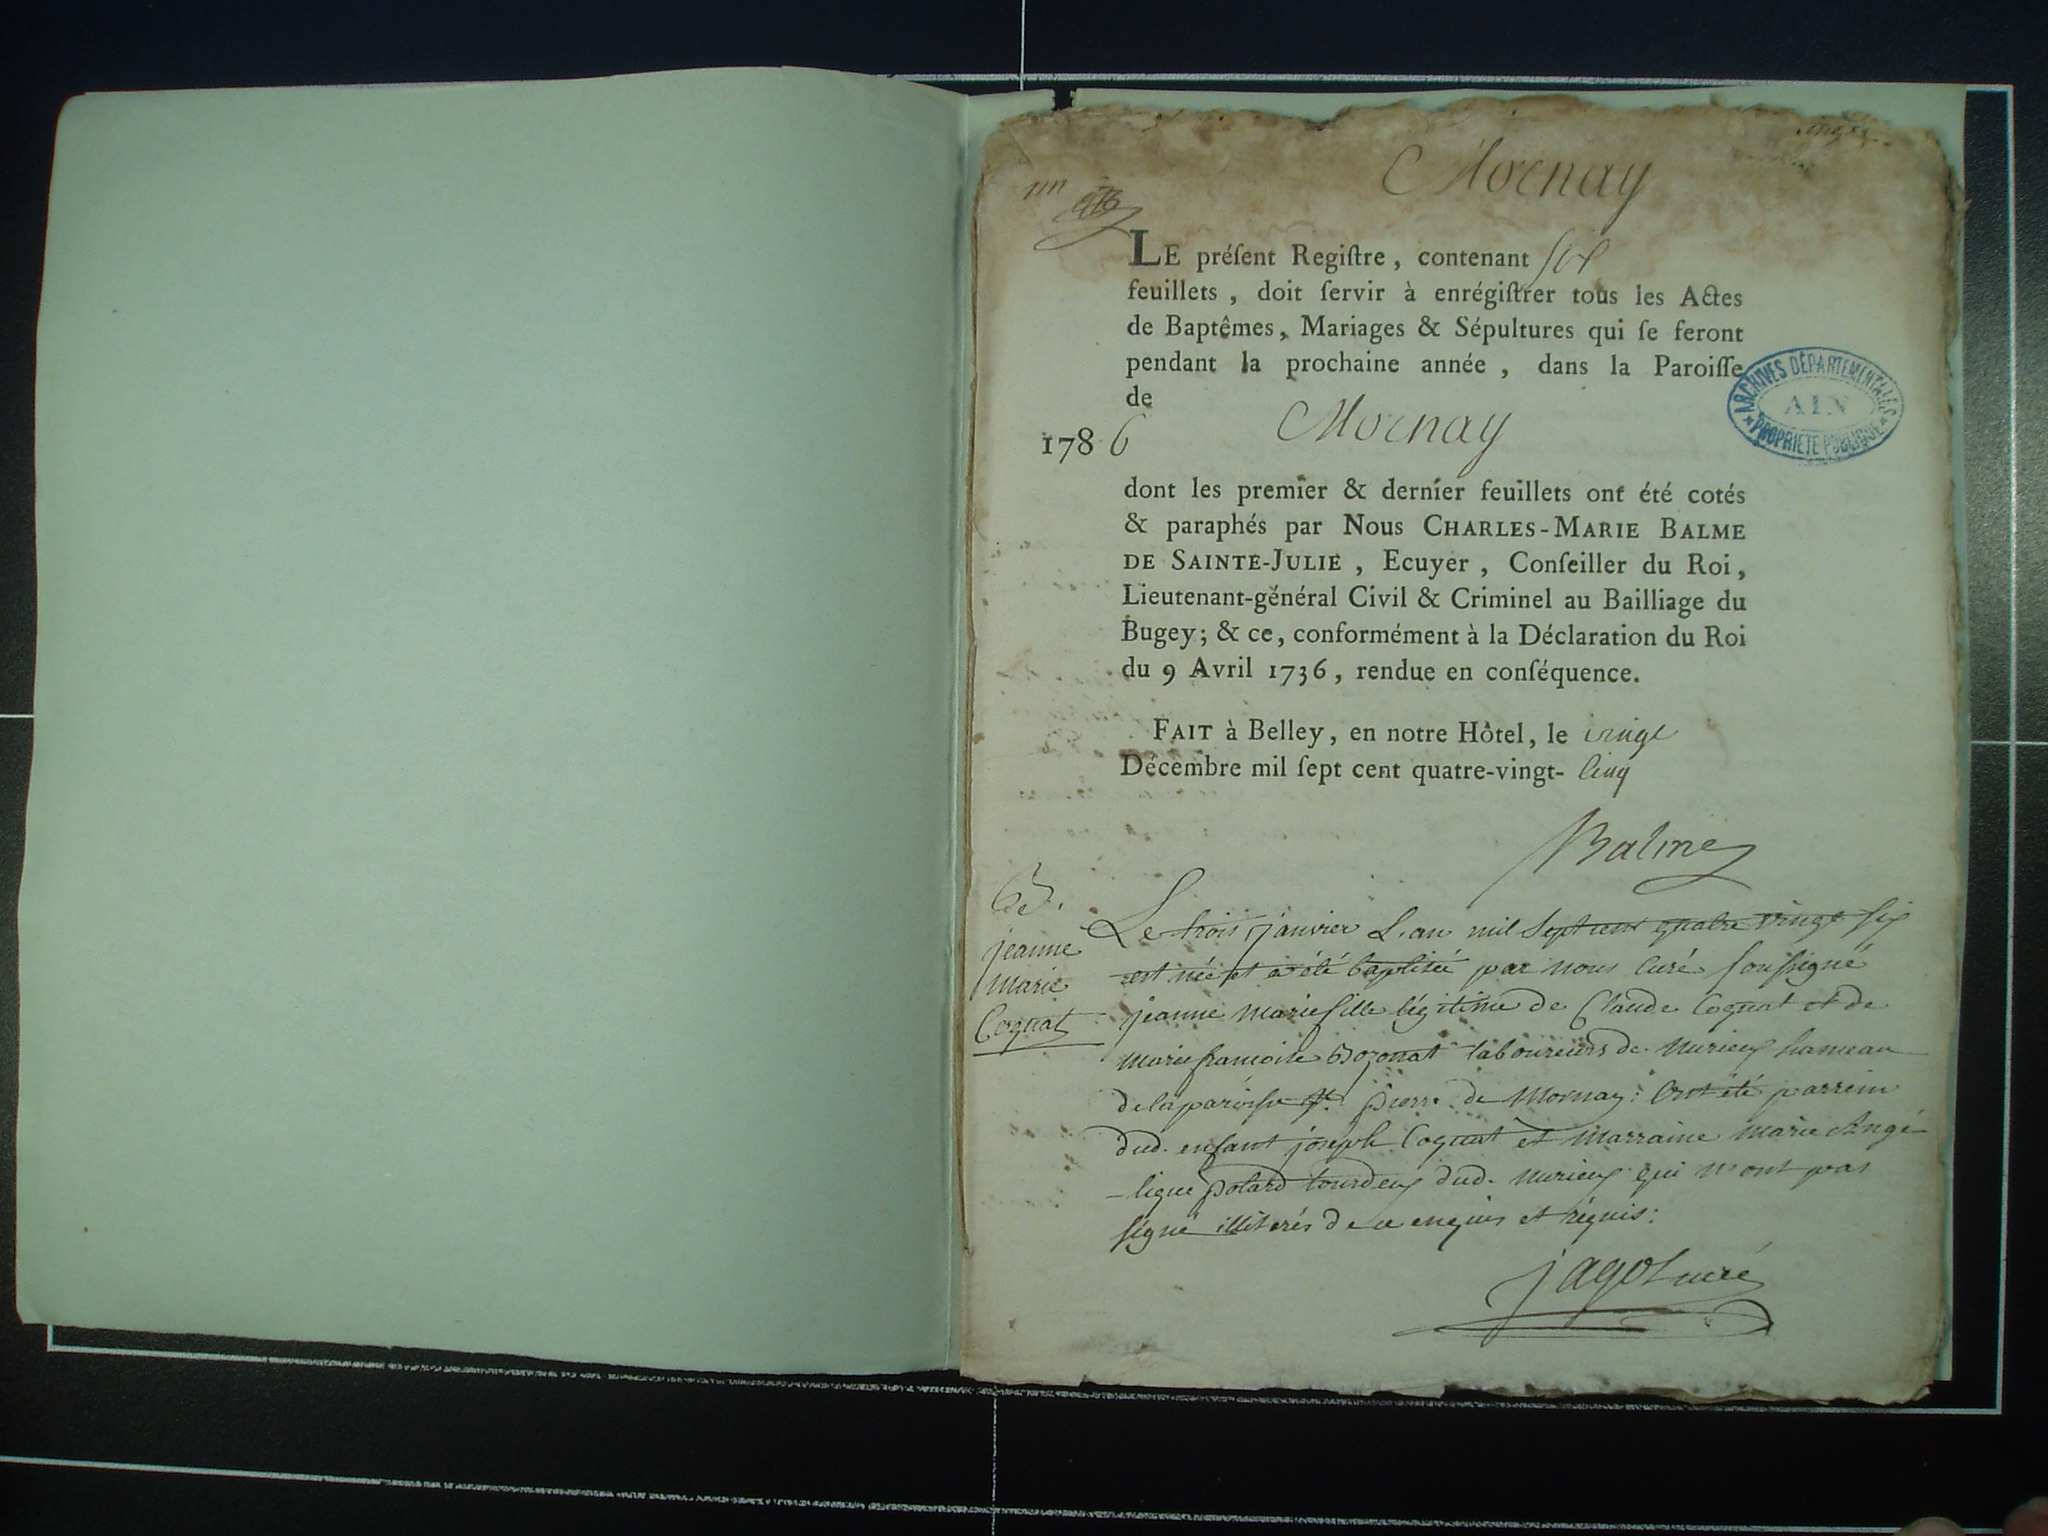 Mornay
LE préſent Regiſtre, contenant six
feuillets, doit ſervir à enrégiſtrer tous les Actes
de Baptêmes, Mariages & Sépultures qui ſe feront
pendant la prochaine année, dans la Paroiſſe
de
1786 Mornay
ARCHIVES DÉPARTEMENTALES
AIN
PROPRIÉTÉ PUBLIQUE
dont les premier & dernier feuillets ont été cotés
& paraphés par Nous CHARLES-MARIE BALME
DE SAINTE-JULIE, Ecuyer, Conſeiller du Roi,
Lieutenant-général Civil & Criminel au Bailliage du
Bugey; & ce, conformément à la Déclaration du Roi
du 9 Avril 1736, rendue en conſéquence.
FAIT à Belley, en notre Hôtel, le vingt
Décembre mil ſept cent quatre-vingt- Cinq
Balme
jeanne
Marie
Coquat
Le trois janvier L'an mil Sept cent quatre vingt six
est née et a été baptisée par nous Curé soussigné
jeanne Marie fille légitime de Claude Coquat et de
Marie francoise Bozonat laboureurs de Nurieux hameau
de la paroisse St. pierre de Mornay: Ont été parrein
dud. enfant joseph Coquat et Marraine Marie Angé
-lique Polard tous deux dud. Nurieux qui n'ont pas
signé illiterés de ce enquis et réquis:
jagot curé